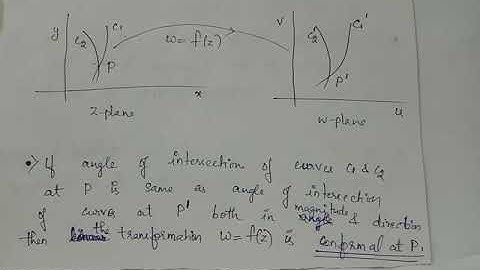 y C2 C1 P
w=f(z)
v C2' C1' P'
x
z-plane
u
w-plane
If angle of intersection of curves C1 & C2
at P is same as angle of intersection
of curves at P' both in magnitude & direction
then the transformation w=f(z) is conformal at P.